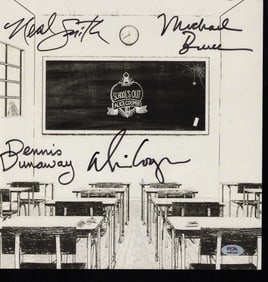 Neal Smith
Michael
Bruce
SCHOOL'S OUT
ALICE COOPER
Dennis
Dunaway
Alice Cooper
PSA